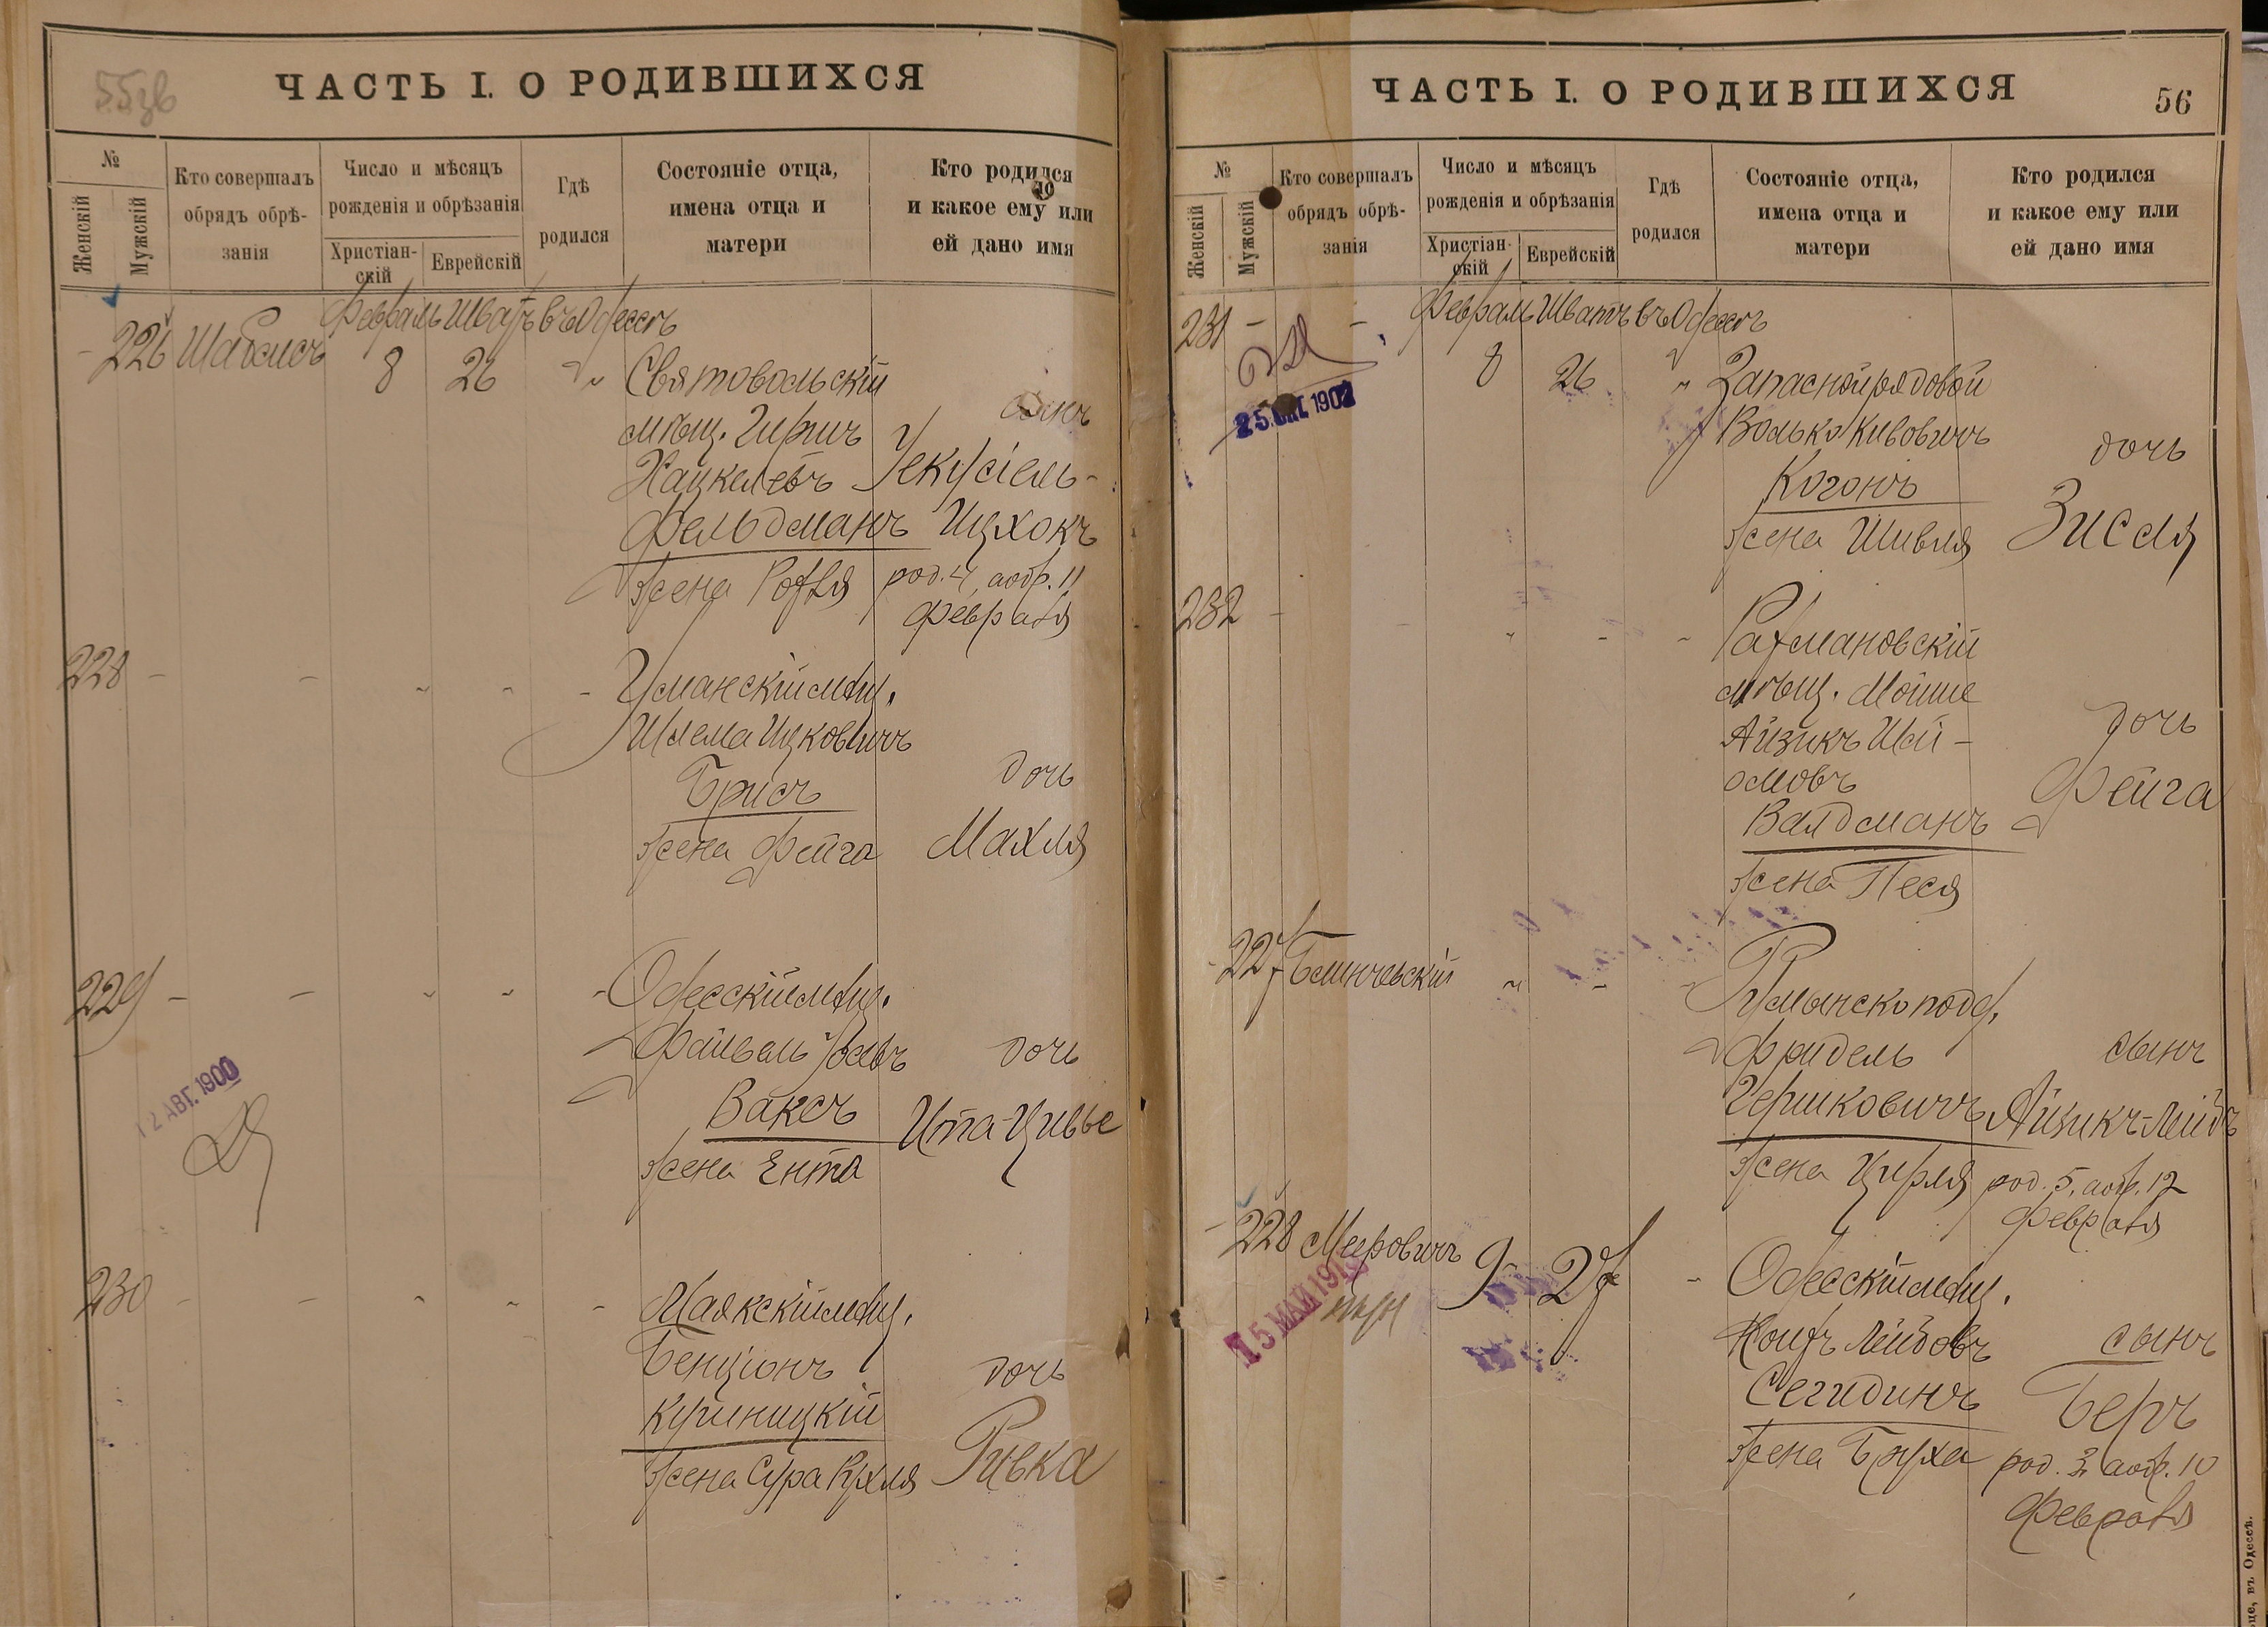 55 зв
ЧАСТЬ I. О РОДИВШИХСЯ
№
Женскій
Мужскій
Кто совершалъ
обрядъ обрѣ-
занія
Число и мѣсяцъ
рожденія и обрѣзанія
Христіан-
скій
Еврейскій
Гдѣ
родился
Состояніе отца,
имена отца и
матери
Кто родился
и какое ему или
ей дано имя
Февраль Шватъ въ Одессѣ
226 Шабсисъ 8 26 " Святовольскій
мѣщ. Гиршъ сынъ
Хацкелевъ Іекусіель-
Фельдманъ Ицхокъ
жена Рохля род. 4, а обр. 11
февраля
228 - - " " - Уманскій мѣщ.
Шлема Ицковичъ
Брисъ дочь
жена Фейга Махля
229 - - " " - Одесскій мѣщ.
Файвель Іосевъ дочь
12 АВГ. 1900
Ваксъ Ита-Цивье
жена Ента
230 - - " " - Маякскій мѣщ.
Бенціонъ дочь
Куницкій
жена Сура Рухля Ривка
ЧАСТЬ I. О РОДИВШИХСЯ
56
№
Женскій
Мужскій
Кто совершалъ
обрядъ обрѣ-
занія
Число и мѣсяцъ
рожденія и обрѣзанія
Христіан-
скій
Еврейскій
Гдѣ
родился
Состояніе отца,
имена отца и
матери
Кто родился
и какое ему или
ей дано имя
Февраль Шватъ въ Одессѣ
231 - - 8 26 " Запасной рядовой
Волько Кивовичъ дочь
Когонъ
жена Шивля Зисля
232 - - " - - Рахмановскій
мѣщ. Мойше
Айзикъ Шай- дочь
омовъ Фейга
Валдманъ
жена Песя
227 Блинчевскій " - " Румынскоподд.
Фридель сынъ
Гершковичъ Айзикъ-Лейбъ
жена Цирля род. 5, а обр. 12
февраля
228 Меровичъ 9 27 - Одесскій мѣщ.
15 МАЙ
Лейбовъ сынъ
Сегидинъ Беръ
жена Бруха род. 3, а обр. 10
февраля
въ Одессѣ.